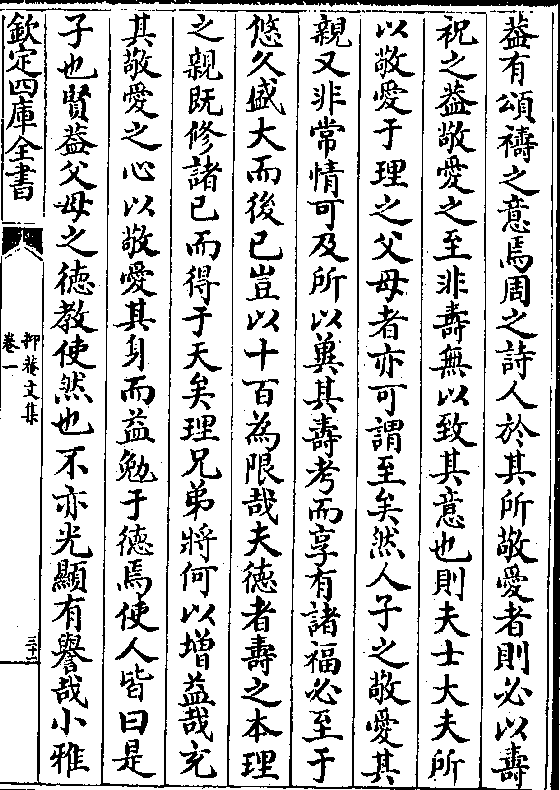 葢有頌禱之意焉周之詩人於其所敬愛者則必以壽
祝之葢敬愛之至非壽無以致其意也則夫士大夫所
以敬愛于理之父母者亦可謂至矣然人子之敬愛其
親又非常情可及所以冀其壽考而享有諸福必至于
悠久盛大而後已豈以十百為限哉夫徳者壽之本理
之親既修諸已而得于天矣理兄弟將何以增益哉充
其敬愛之心以敬愛其身而益勉于徳焉使人皆曰是
子也賢葢父母之徳教使然也不亦光顯有譽哉小雅
欽定四庫全書
抑菴文集
卷一
三十二